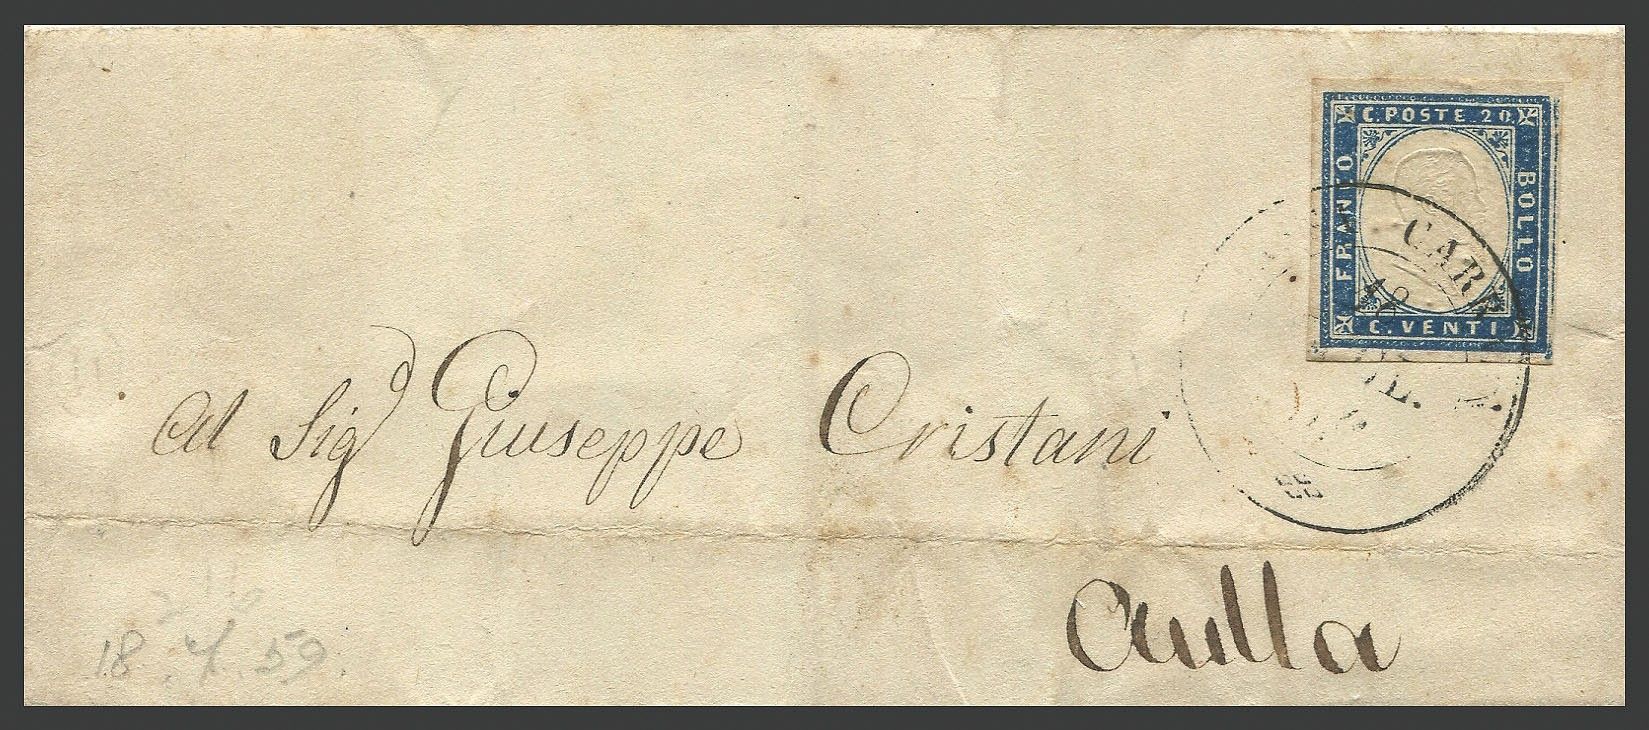 C. POSTE 20
FRANCO
BOLLO
C. VENTI
Al Sigr Giuseppe Cristani
Aulla
18. 7. 59.